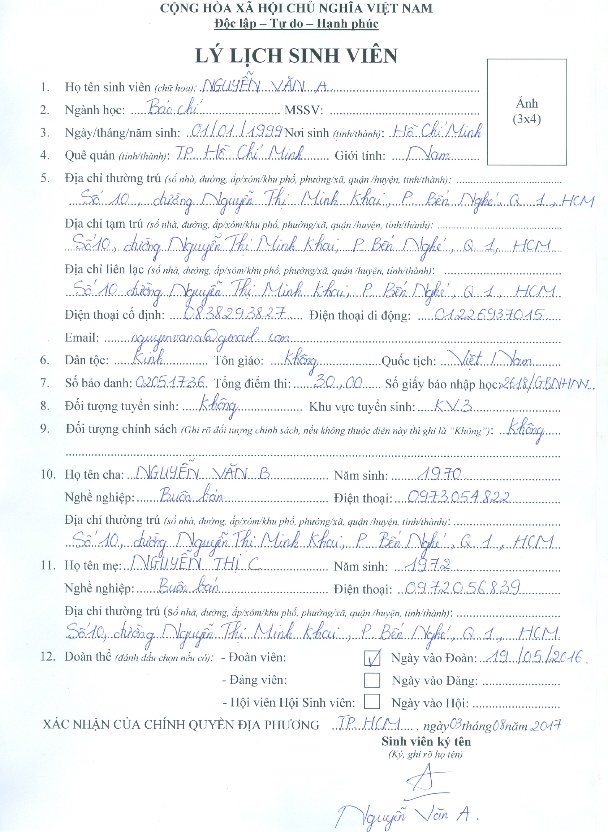 CỘNG HÒA XÃ HỘI CHỦ NGHĨA VIỆT NAM
Độc lập – Tự do – Hạnh phúc
LÝ LỊCH SINH VIÊN
1. Họ tên sinh viên (chữ hoa): NGUYỄN VĂN A
Ảnh
(3x4)
2. Ngành học: Báo chí MSSV:
3. Ngày/tháng/năm sinh: 01/01/1999 Nơi sinh (tỉnh/thành): Hồ Chí Minh
4. Quê quán (tỉnh/thành): TP. Hồ Chí Minh Giới tính: Nam
5. Địa chỉ thường trú (số nhà, đường, ấp/xóm/khu phố, phường/xã, quận /huyện, tỉnh/thành):
Số 10, đường Nguyễn Thị Minh Khai, P. Bến Nghé, Q 1, HCM
Địa chỉ tạm trú (số nhà, đường, ấp/xóm/khu phố, phường/xã, quận /huyện, tỉnh/thành):
Số 10, đường Nguyễn Thị Minh Khai, P. Bến Nghé, Q. 1, HCM
Địa chỉ liên lạc (số nhà, đường, ấp/xóm/khu phố, phường/xã, quận /huyện, tỉnh/thành):
Số 10 đường Nguyễn Thị Minh Khai, P. Bến Nghé, Q. 1, HCM
Điện thoại cố định: 0838293827 Điện thoại di động: 01226937015
Email: nguyenvana@gmail.com
6. Dân tộc: Kinh Tôn giáo: Không Quốc tịch: Việt Nam
7. Số báo danh: 02051736 Tổng điểm thi: 30,00 Số giấy báo nhập học: 2618/GBNHNV
8. Đối tượng tuyển sinh: Không Khu vực tuyển sinh: KV3
9. Đối tượng chính sách (Ghi rõ đối tượng chính sách, nếu không thuộc diện này thì ghi là "Không"): Không
10. Họ tên cha: NGUYỄN VĂN B Năm sinh: 1970
Nghề nghiệp: Buôn bán Điện thoại: 0973054822
Địa chỉ thường trú (số nhà, đường, ấp/xóm/khu phố, phường/xã, quận /huyện, tỉnh/thành):
Số 10, đường Nguyễn Thị Minh Khai, P. Bến Nghé, Q. 1, HCM
11. Họ tên mẹ: NGUYỄN THỊ C Năm sinh: 1972
Nghề nghiệp: Buôn bán Điện thoại: 0972056839
Địa chỉ thường trú (số nhà, đường, ấp/xóm/khu phố, phường/xã, quận /huyện, tỉnh/thành):
Số 10, đường Nguyễn Thị Minh Khai, P. Bến Nghé, Q. 1, HCM
12. Đoàn thể (đánh dấu chọn nếu có): - Đoàn viên: ☑ Ngày vào Đoàn: 19/05/2016
- Đảng viên: ☐ Ngày vào Đảng:
- Hội viên Hội Sinh viên: ☐ Ngày vào Hội:
XÁC NHẬN CỦA CHÍNH QUYỀN ĐỊA PHƯƠNG TP. HCM, ngày 03 tháng 08 năm 2017
Sinh viên ký tên
(Ký, ghi rõ họ tên)
A
Nguyễn Văn A.